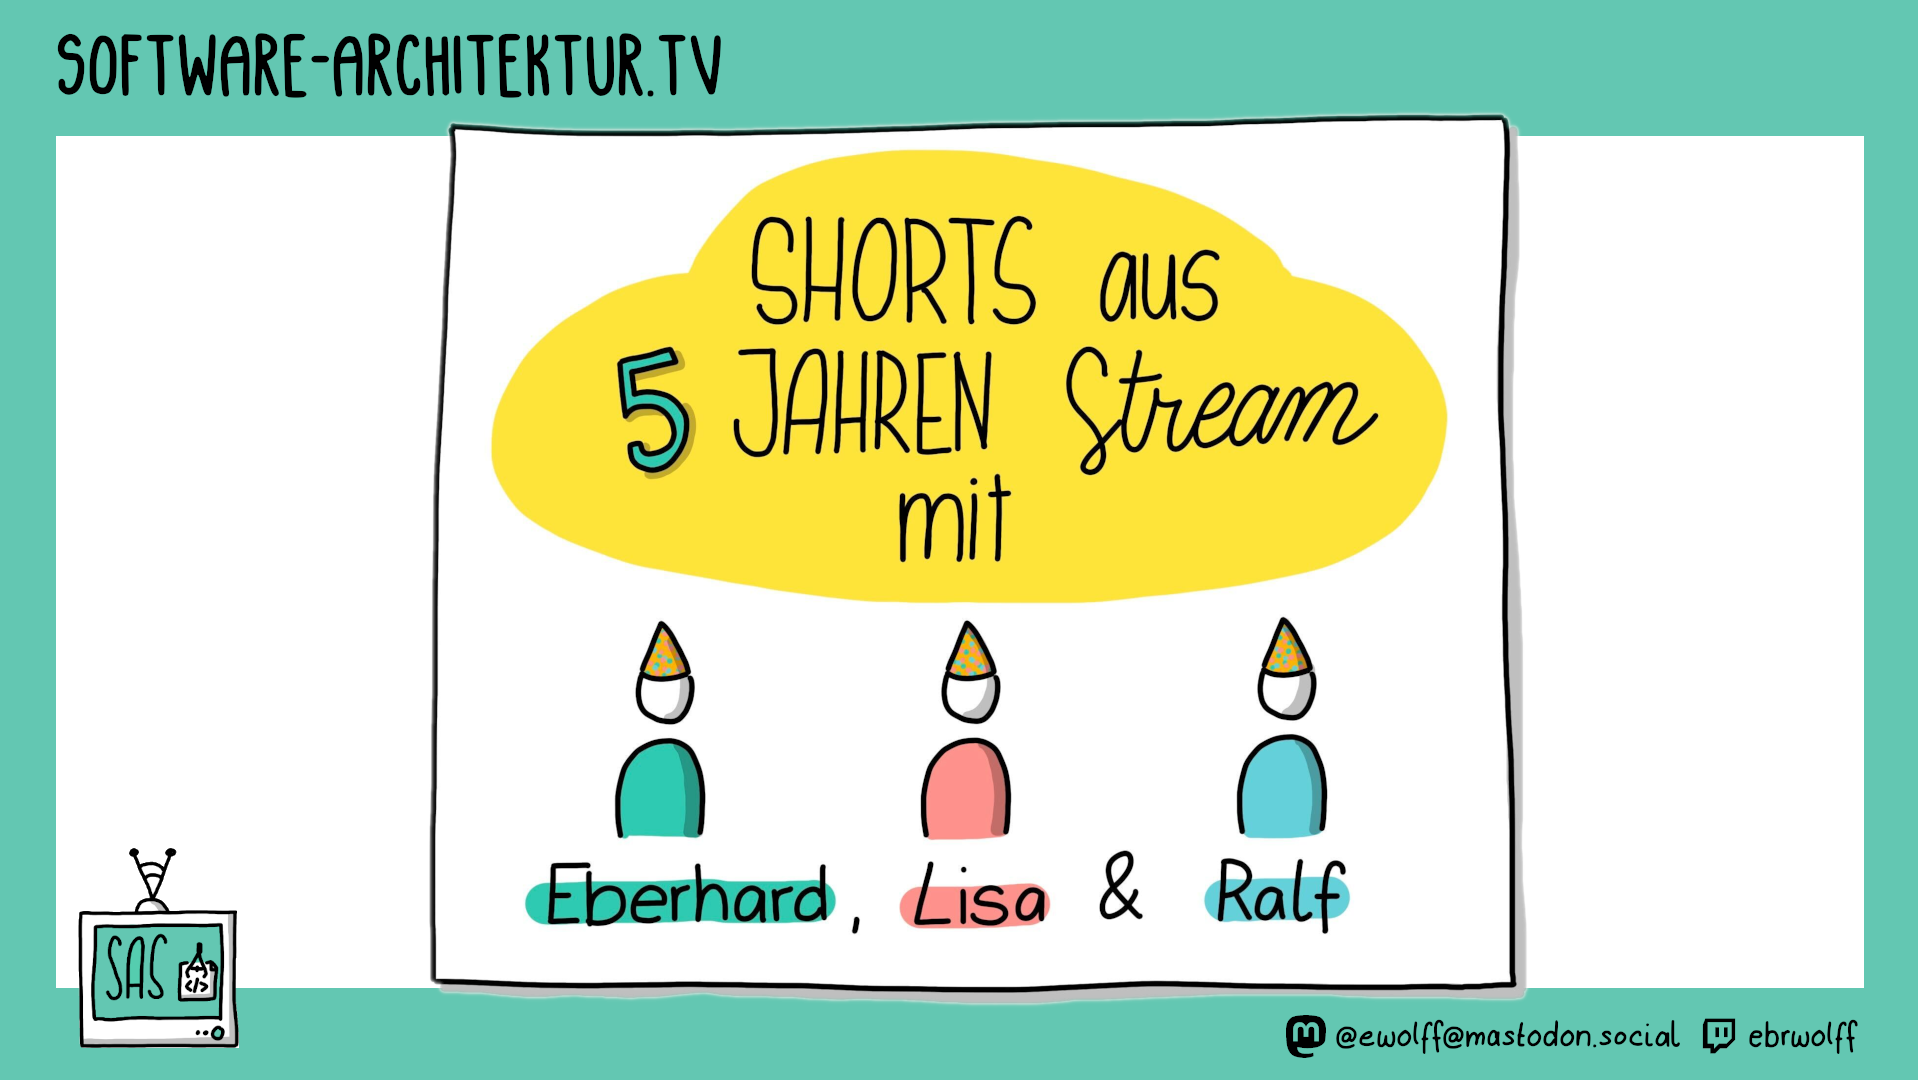 SOFTWARE-ARCHITEKTUR.TV
SHORTS aus
5 JAHREN Stream
mit
Eberhard, Lisa & Ralf
SAS
</>
@ewolff@mastodon.social ebrwolff